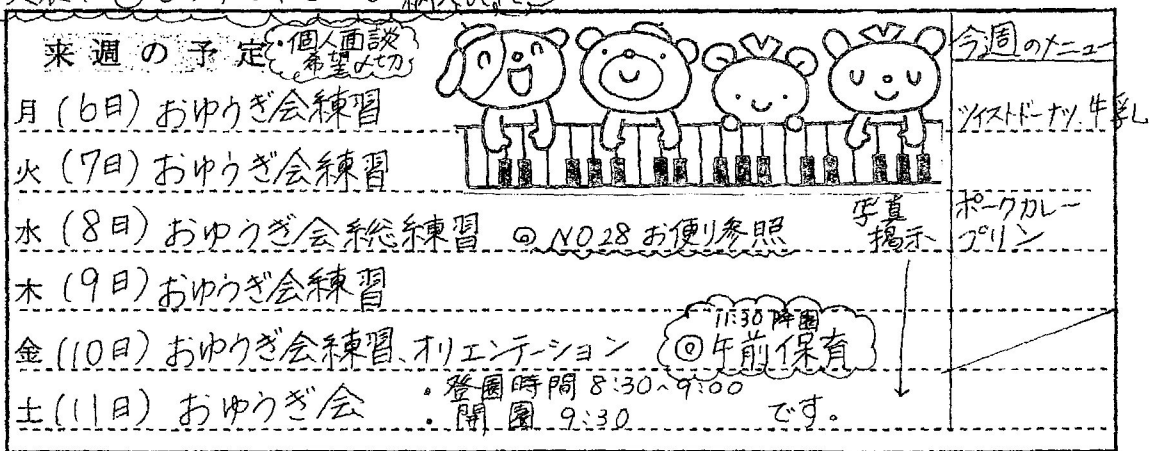 来週の予定
・個人面談
希望〆切
今週のメニュー
月(6日)おゆうぎ会練習
ツイストドーナツ、牛乳
火(7日)おゆうぎ会練習
水(8日)おゆうぎ会総練習 ◎NO28お便り参照
写真
掲示
ポークカレー
プリン
木(9日)おゆうぎ会練習
金(10日)おゆうぎ会練習、オリエンテーション
11:30降園
◎午前保育
土(11日)おゆうぎ会
・登園時間 8:30~9:00
・開園 9:30 です。